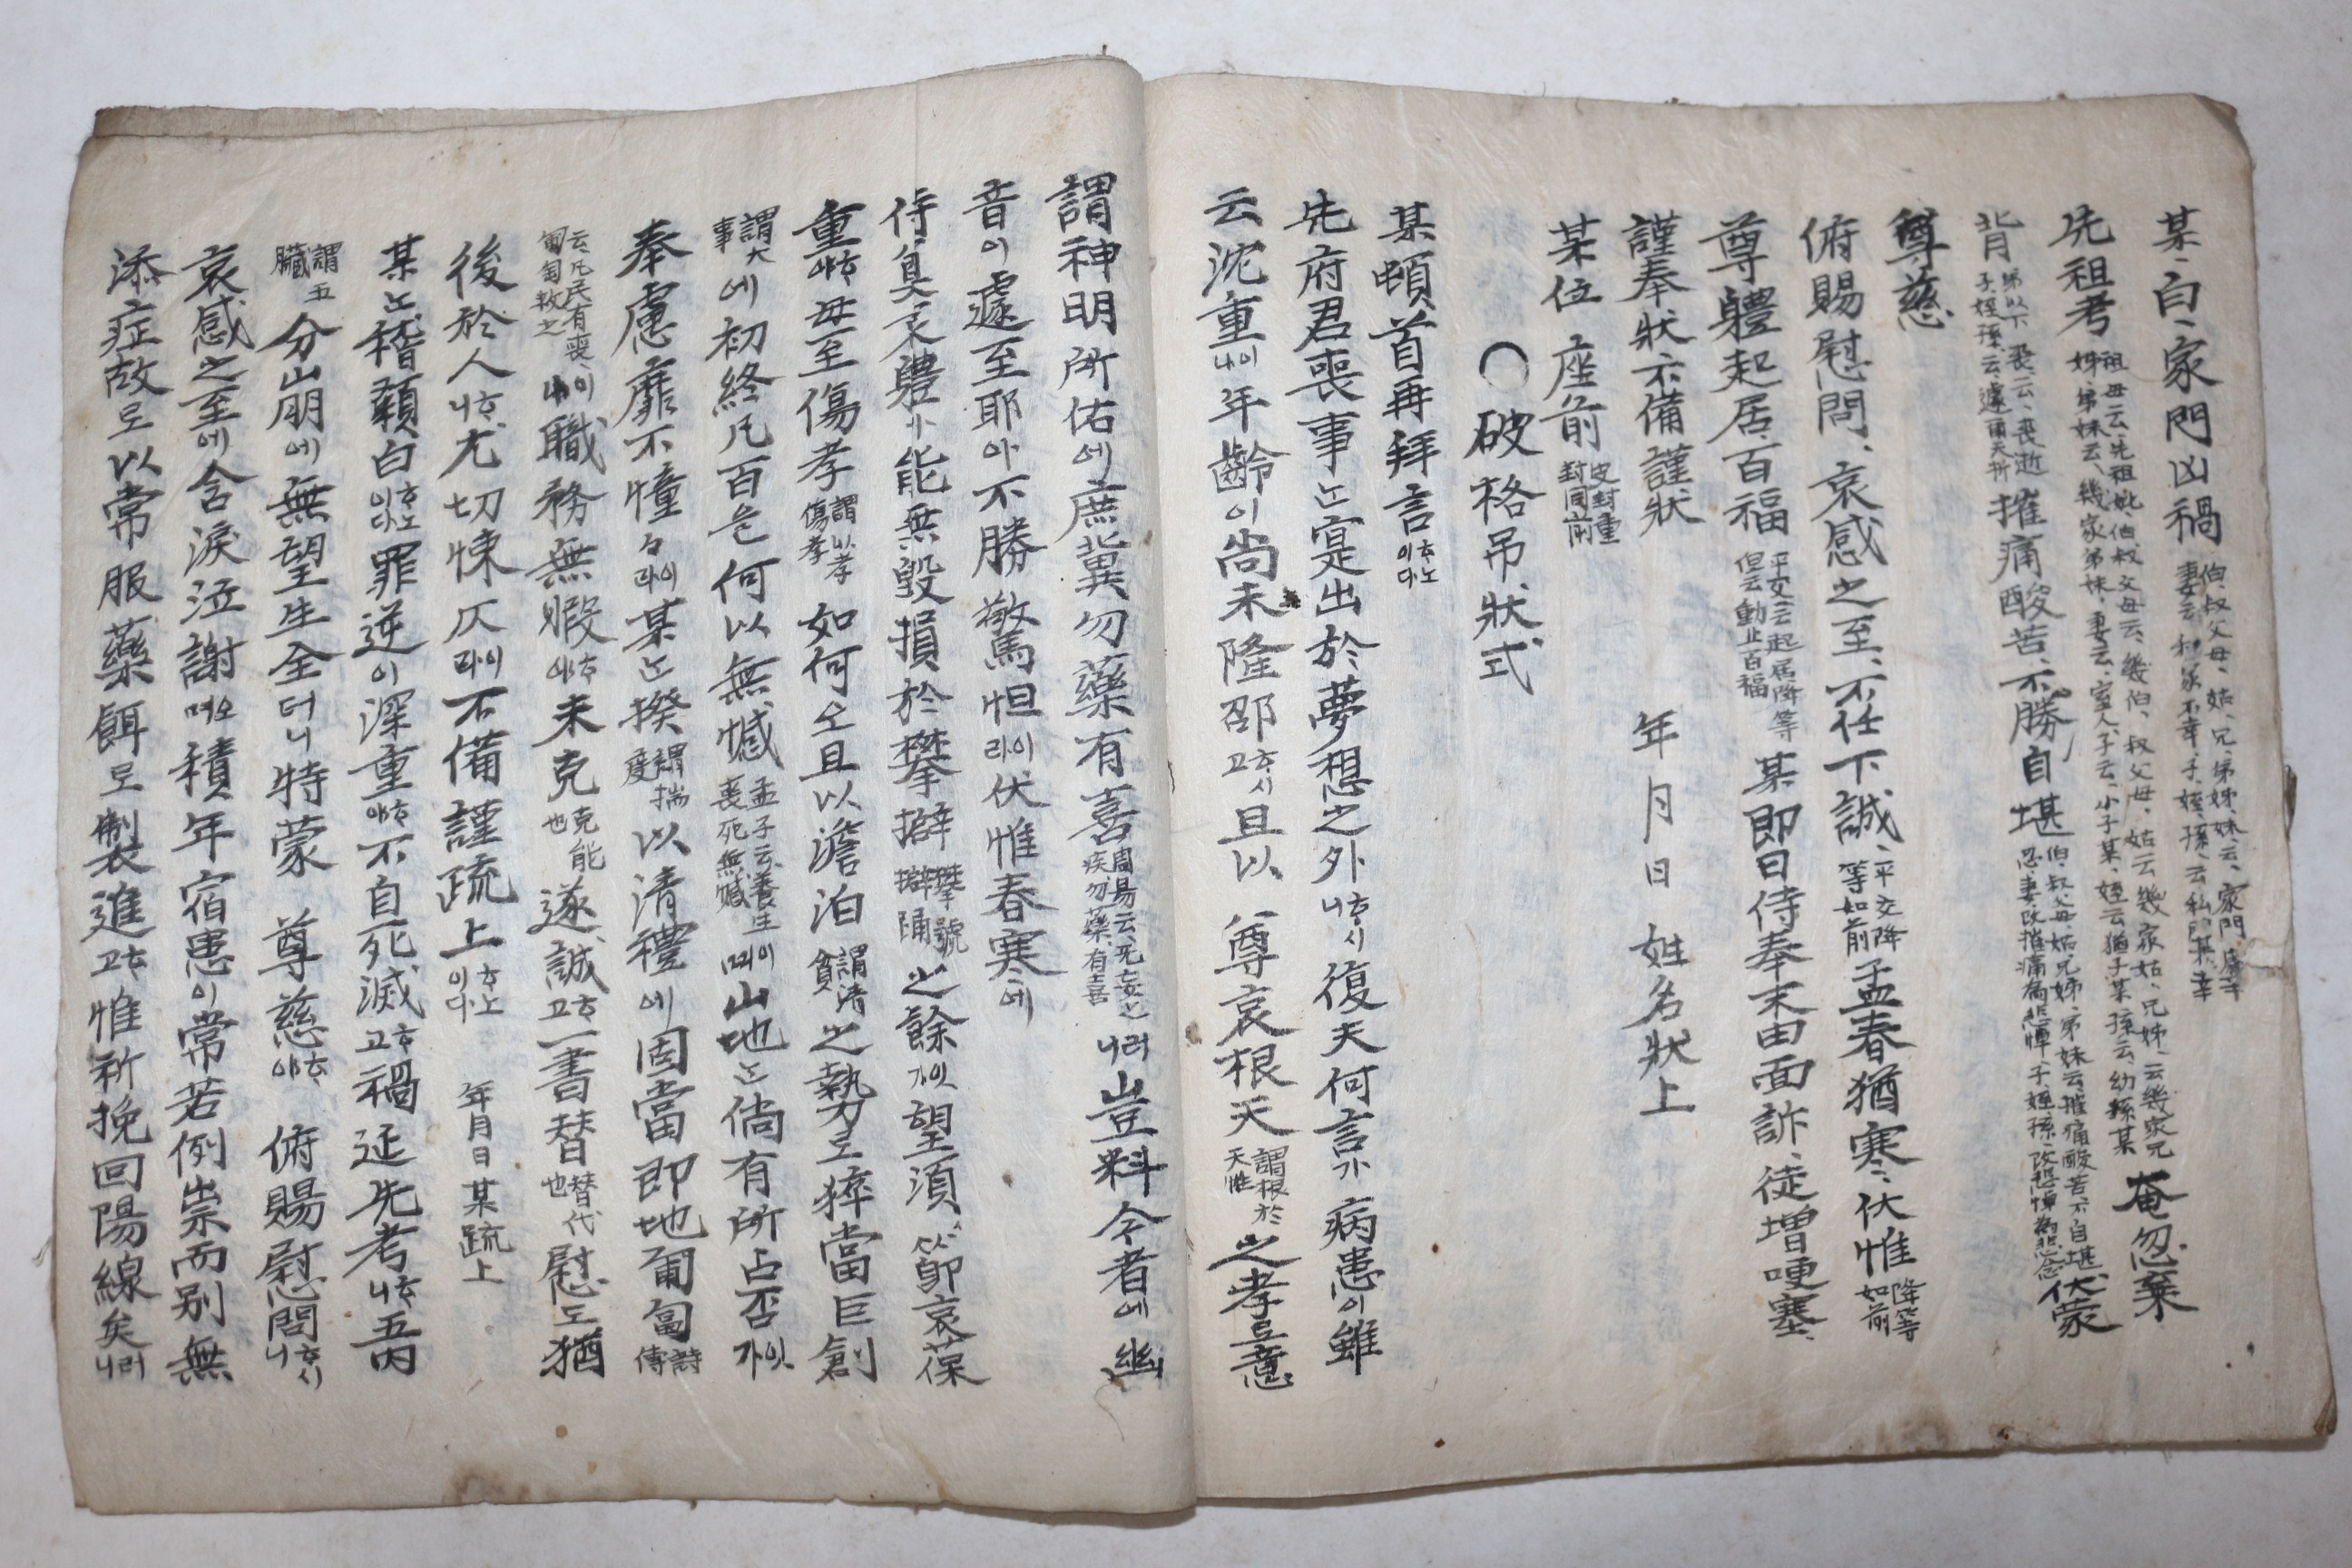 某白家門凶禍 伯叔父母姑兄弟姊妹云家門不幸 妻云私家不幸子姪孫云私門某幸
先祖考 祖母云先祖妣伯叔父母云幾伯叔父母姑云幾家姑兄姊云幾家兄姊弟妹云幾家弟妹妻云室人子云小子某姪云猶子某孫云幼孫某 奄忽棄
背 弟以下喪云喪逝子姪孫云遽爾夭折 摧痛酸苦不勝自堪 伯叔父母姑兄姊弟妹云摧痛酸苦不自堪忍妻改摧痛爲悲悼子姪孫改悲悼爲悲念 伏蒙
尊慈
俯賜慰問哀感之至不任下誠 平交降等如前 孟春猶寒伏惟 降等如前
尊體起居百福 平交云起居降等但云動止百福 某卽日侍奉末由面訴徒增哽塞
謹奉狀不備謹狀 年月日姓名狀上
某位 座前 皮封重封同前
○破格吊狀式
某頓首再拜言 ᄒᆞ노이다
先府君喪事ᄂᆞᆫ寔出於夢想之外 ᄒᆞ시니 復夫何言가病患이雖
云沈重이나年齡이尙未隆卲 ᄒᆞ시고 且以 尊哀根天 謂根於天性 之孝로意
謂神明所佑에庶冀勿藥有喜 周易云无妄之疾勿藥有喜 러니豈料今者에幽
音이遽至耶아不勝驚怛이라伏惟春寒에
侍奠哀體ㅣ能無毁損於攀擗 攀號擗踊 之餘잇가望須 節哀葆
重ᄒᆞ야毋至傷孝 謂以孝傷孝 如何오且以澹泊 謂淸貧 之勢로猝當巨創
謂大事 에初終凡百은何以無憾 孟子云養生喪死無憾 이며山地ᄂᆞᆫ倘有所占否잇가
奉慮靡不憧々이라某ᄂᆞᆫ揆 謂揣度 以淸禮에固當卽地匍匐 詩傳
云凡民有喪匍匐救之 이나職務無暇ᄒᆞ야未克 克能也 遂誠ᄒᆞ고一書替 替代也 慰도猶
後於人ᄒᆞ니尤切悚仄이라不備謹疏上 ᄒᆞ노이다 年月日某疏上
某ᄂᆞᆫ稽顙白 ᄒᆞ노이다 罪逆이深重ᄒᆞ야不自死滅ᄒᆞ고禍延先考ᄒᆞ니五內
謂五臟 分崩에無望生全더니特蒙 尊慈ᄒᆞ야 俯賜慰問ᄒᆞ시니
哀感之至에含淚泣謝며오積年宿患이常若例祟而別無
添症故로以常服藥餌로製進ᄒᆞ고惟祈挽回陽線矣러니